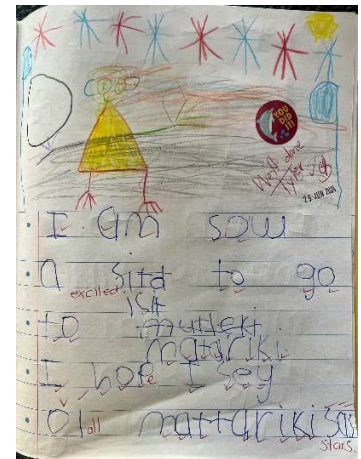 YOU DID IT!
Well done Tyler
25 JUN 2024
I am sow
a sitd to go
excited
to mutleki
matariki
I hope I sey
Ol all mattariki Sas
stars